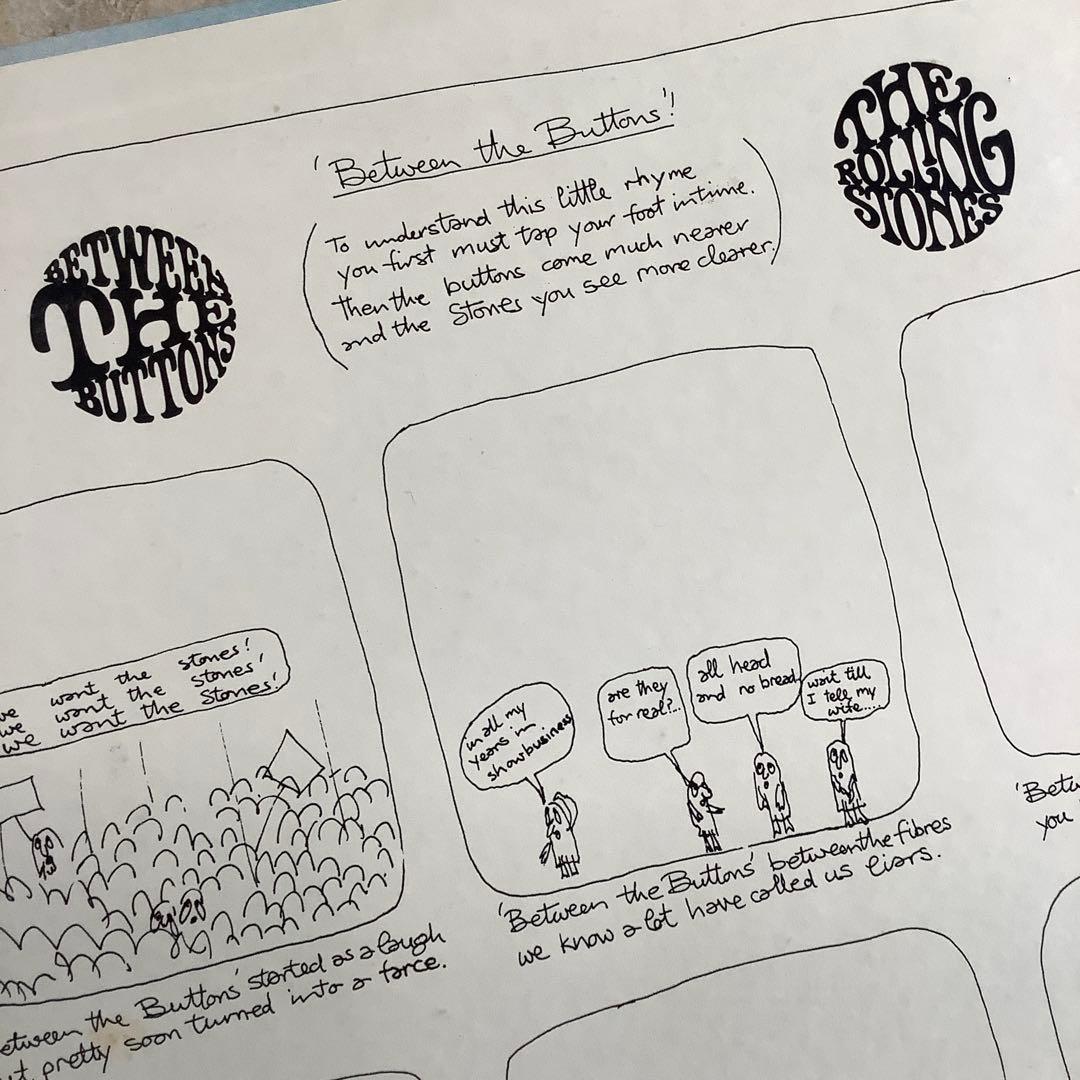 'Between the Buttons'!
(To understand this little rhyme
you first must tap your foot in time.
then the buttons come much nearer
and the Stones you see more clearer.)
BETWEEN
THE
BUTTONS
THE
ROLLING
STONES
we want the stones!
we want the stones'
we want the Stones!
'Between the Buttons' started as a laugh
but pretty soon turned into a farce.
in all my
years in
showbusiness
are they
for real?...
all head
and no bread
wait till
I tell my
wife.....
'Between the Buttons' between the fibres
we know a lot have called us liars.
you